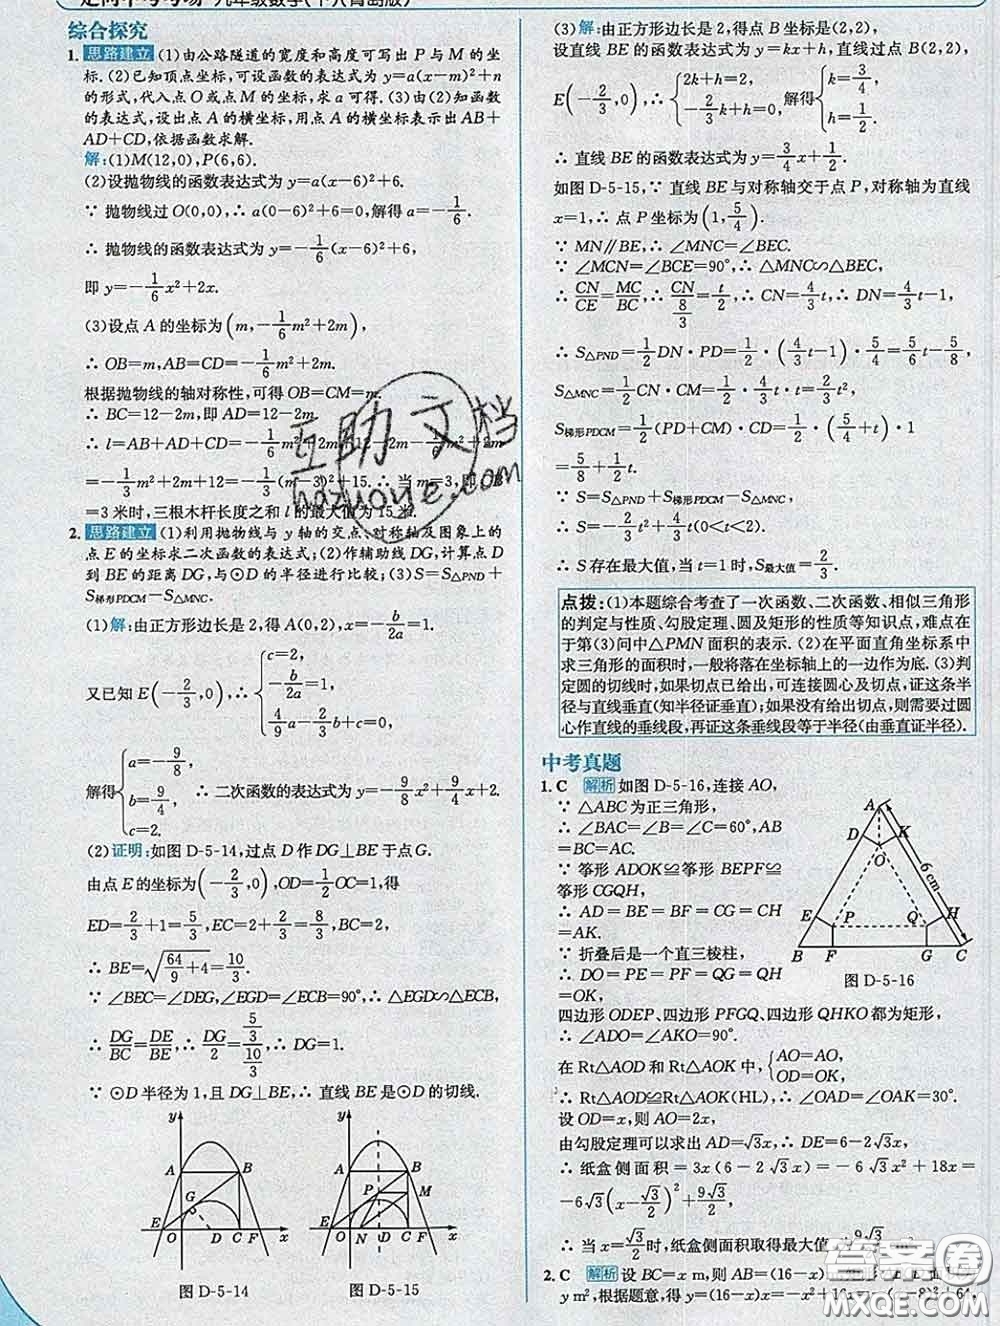 走向中考考场 九年级数学(下)(青岛版)
综合探究
1. 思路建立 (1)由公路隧道的宽度和高度可写出 P 与 M 的坐
标. (2)已知顶点坐标,可设函数的表达式为 y=a(x-m)²+n
的形式,代入点 O或点 M 的坐标,求 a 可得. (3)由(2)知函数
的表达式,设出点 A 的横坐标,用点 A 的横坐标表示出 AB+
AD+CD,依据函数求解.
解:(1)M(12,0),P(6,6).
(2)设抛物线的函数表达式为 y=a(x-6)²+6.
∵ 抛物线过 O(0,0),∴ a(0-6)²+6=0,解得 a=-1/6.
∴ 抛物线的函数表达式为 y=-1/6(x-6)²+6,
即 y=-1/6x²+2x.
(3)设点 A 的坐标为(m,-1/6m²+2m),
∴ OB=m,AB=CD=-1/6m²+2m.
根据抛物线的轴对称性,可得 OB=CM=m.
∴ BC=12-2m,即 AD=12-2m.
∴ l=AB+AD+CD=-1/6m²+2m+12-2m-1/6m²+2m
=-1/3m²+2m+12=-1/3(m-3)²+15. ∴ 当 m=3,即 OB
=3 米时,三根木杆长度之和 l 的最大值为 15 米.
2. 思路建立 (1)利用抛物线与 y 轴的交点、对称轴及图象上的
点 E 的坐标求二次函数的表达式;(2)作辅助线 DG,计算点 D
到 BE 的距离 DG,与⊙D 的半径进行比较;(3)S=S△PND+
S梯形PDCM-S△MNC.
(1)解:由正方形边长是 2,得 A(0,2),x=-b/2a=1.
又已知 E(-2/3,0),∴ { c=2, -b/2a=1, 4/9a-2/3b+c=0.
解得{ a=-9/8, b=9/4, c=2. ∴ 二次函数的表达式为 y=-9/8x²+9/4x+2.
(2)证明:如图 D-5-14,过点 D 作 DG⊥BE 于点 G.
由点 E 的坐标为(-2/3,0),OD=1/2OC=1,得
ED=2/3+1=5/3,EC=2+2/3=8/3,BC=2,
∴ BE=√(64/9+4)=10/3.
∵ ∠BEC=∠DEG,∠EGD=∠ECB=90°,∴ △EGD∽△ECB,
∴ DG/BC=DE/BE,∴ DG/2=(5/3)/(10/3),∴ DG=1.
∵ ⊙D 半径为 1,且 DG⊥BE,∴ 直线 BE 是⊙D 的切线.
y A B G E O D C F x
图 D-5-14
y A B P M E O N D C F x
图 D-5-15
(3)解:由正方形边长是 2,得点 B 的坐标为(2,2),
设直线 BE 的函数表达式为 y=kx+h,直线过点 B(2,2),
E(-2/3,0),∴ { 2k+h=2, -2/3k+h=0, 解得{ k=3/4, h=1/2.
∴ 直线 BE 的函数表达式为 y=3/4x+1/2.
如图 D-5-15,∵ 直线 BE 与对称轴交于点 P,对称轴为直线
x=1,∴ 点 P 坐标为(1,5/4).
∵ MN∥BE,∴ ∠MNC=∠BEC.
∵ ∠MCN=∠BCE=90°,∴ △MNC∽△BEC,
∴ CN/CE=MC/BC,∴ CN/(8/3)=t/2,∴ CN=4/3t,∴ DN=4/3t-1,
∴ S△PND=1/2DN·PD=1/2·(4/3t-1)·5/4=5/6t-5/8,
S△MNC=1/2CN·CM=1/2·4/3t·t=2/3t²,
S梯形PDCM=1/2(PD+CM)·CD=1/2·(5/4+t)·1
=5/8+1/2t.
∵ S=S△PND+S梯形PDCM-S△MNC,
∴ S=-2/3t²+4/3t(0<t<2).
∴ S 存在最大值,当 t=1 时,S最大值=2/3.
点拨:(1)本题综合考查了一次函数、二次函数、相似三角形
的判定与性质、勾股定理、圆及矩形的性质等知识点,难点在
于第(3)问中△PMN 面积的表示. (2)在平面直角坐标系中
求三角形的面积时,一般将落在坐标轴上的一边作为底. (3)判
定圆的切线时,如果切点已给出,可连接圆心及切点,证这条半
径与直线垂直(知半径证垂直);如果没有给出切点,则需要过圆
心作直线的垂线段,再证这条垂线段等于半径(由垂直证半径).
中考真题
1. C 解析 如图 D-5-16,连接 AO,
∵ △ABC 为正三角形,
∴ ∠BAC=∠B=∠C=60°,AB
=BC=AC.
∵ 筝形 ADOK≌筝形 BEPF≌
筝形 CGQH,
∴ AD=BE=BF=CG=CH
=AK.
∵ 折叠后是一个直三棱柱,
∴ DO=PE=PF=QG=QH
=OK,
四边形 ODEP、四边形 PFGQ、四边形 QHKO 都为矩形,
∴ ∠ADO=∠AKO=90°.
在 Rt△AOD 和 Rt△AOK 中,{ AO=AO, OD=OK,
∴ Rt△AOD≌Rt△AOK(HL),∴ ∠OAD=∠OAK=30°.
设 OD=x,则 AO=2x,
由勾股定理可以求出 AD=√3x,∴ DE=6-2√3x,
∴ 纸盒侧面积=3x(6-2√3x)=-6√3x²+18x=
-6√3(x-√3/2)²+9√3/2,
∴ 当 x=√3/2时,纸盒侧面积取得最大值为 9√3/2 cm².
A D K O 6 cm E P Q H B F G C
图 D-5-16
2. C 解析 设 BC=x m,则 AB=(16-x) m,
y m²,根据题意,得 y=(16-x)x=-x²+16x=-(x-8)²+64,
互助文档
hazuoye.com
答案卷
MXQE.COM